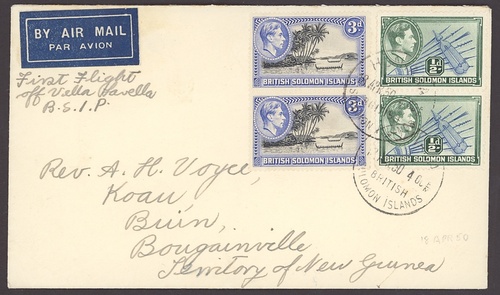 BY AIR MAIL
PAR AVION
First Flight
off Vella Lavella
B.S.I.P.
3d
BRITISH SOLOMON ISLANDS
½d
BRITISH SOLOMON ISLANDS
3d
BRITISH SOLOMON ISLANDS
½d
BRITISH SOLOMON ISLANDS
BRITISH
SOLOMON ISLANDS
Rev. A. H. Voyce,
Koau,
Buin,
Bougainville
Territory of New Guinea